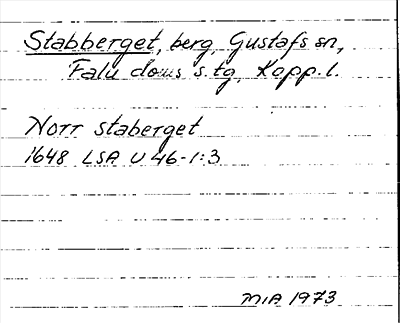 Stabberget, berg, Gustafs sn,
Falu doms s. tg, Kopp. l.
Norr staberget
1648 LSA U 46-1:3
MIA 1973